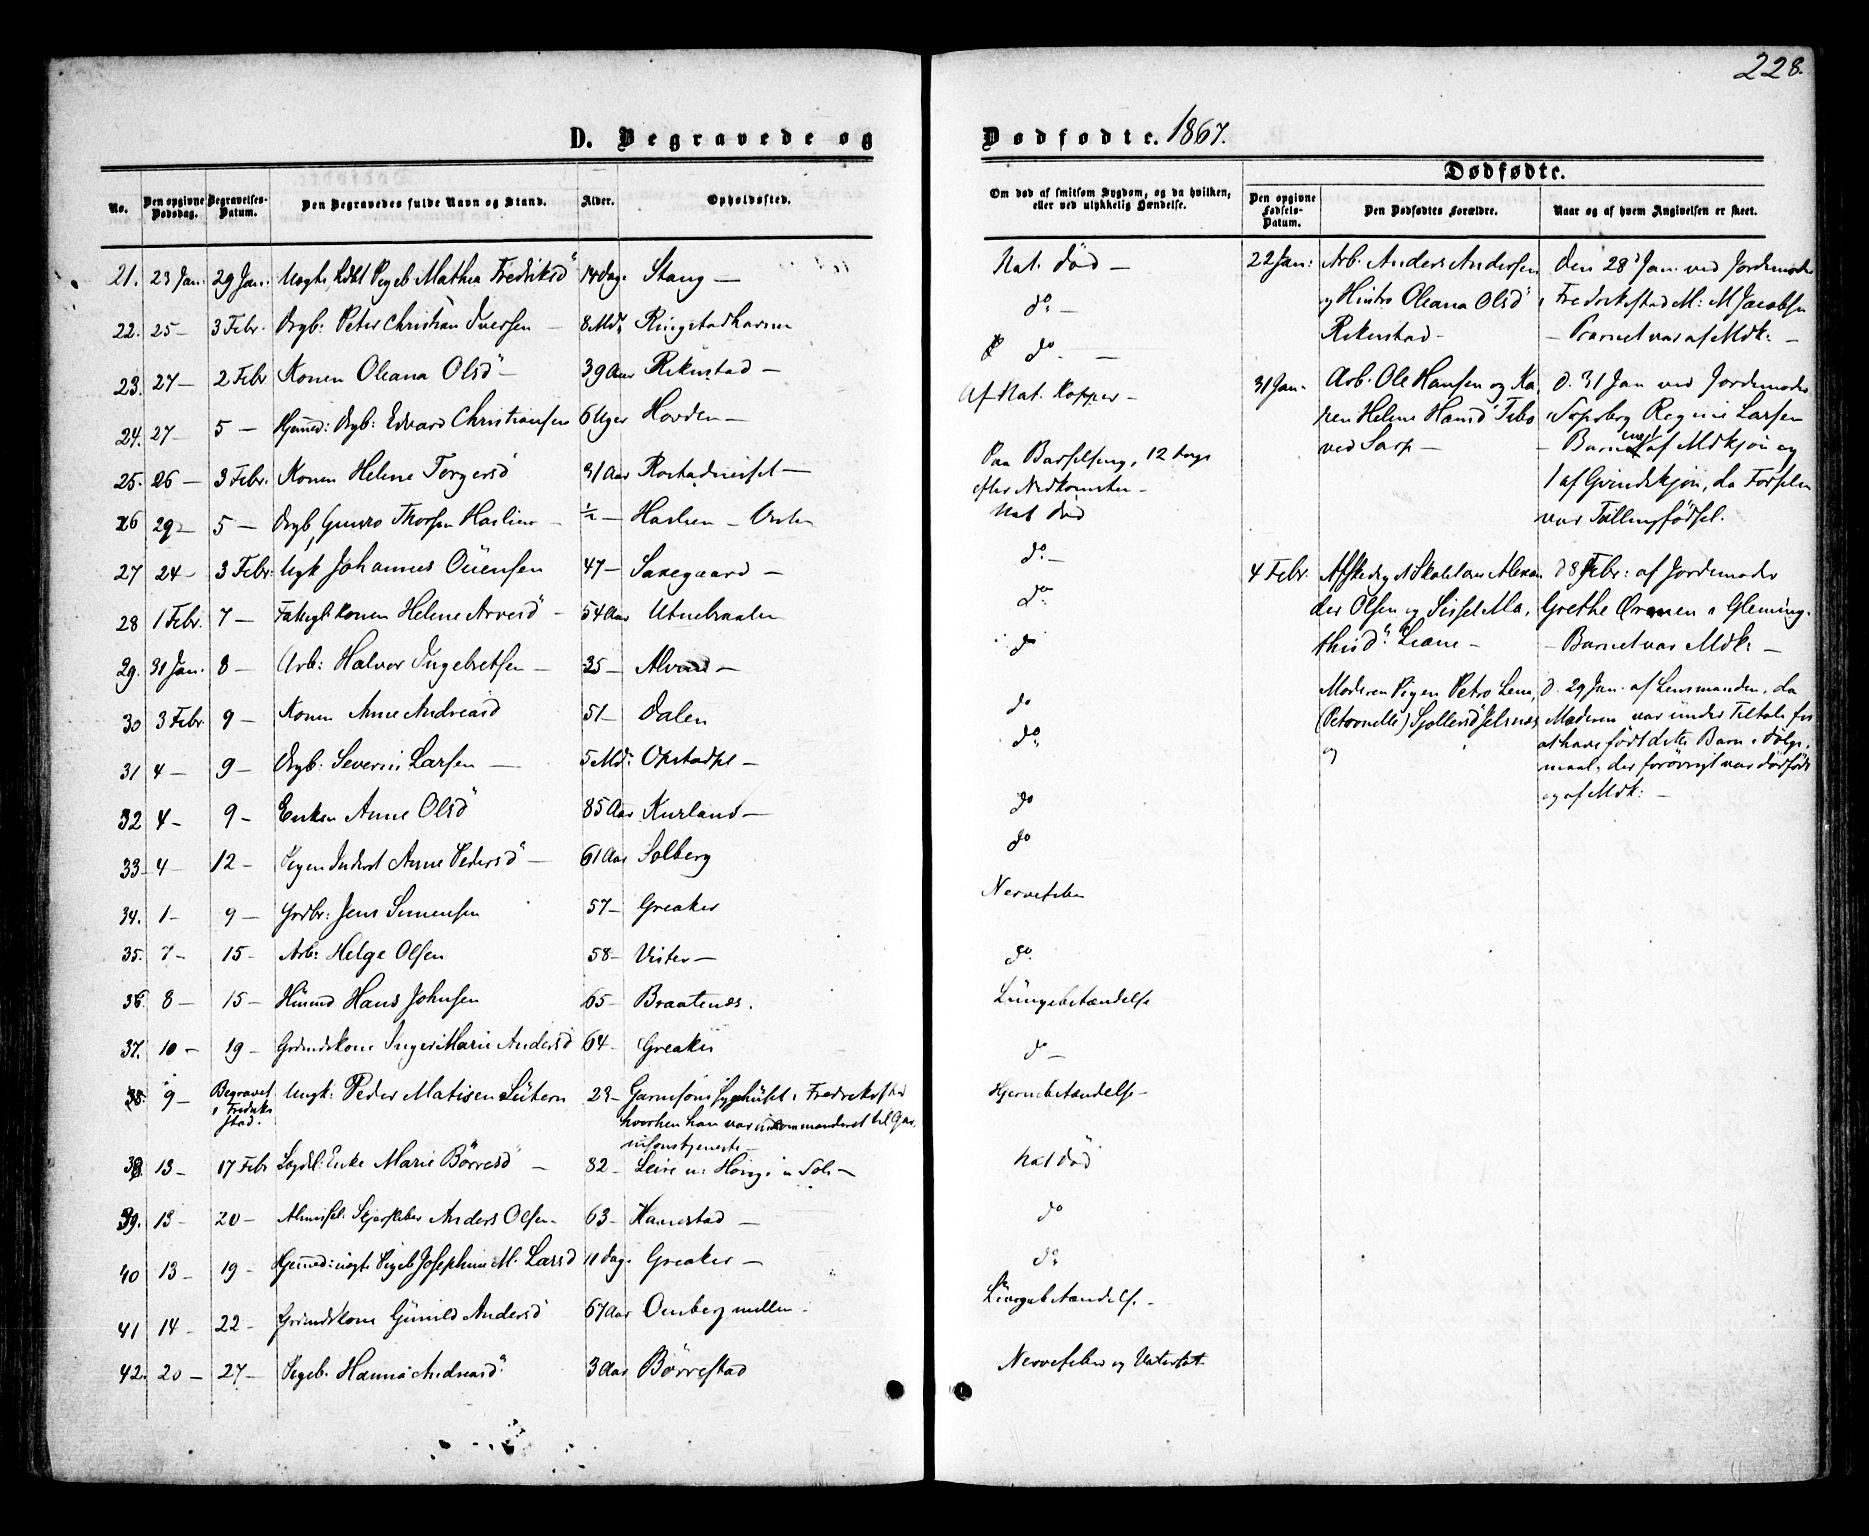 228.
D. Begravede og Dødfødte. 1867.
Dødfødte.
No. Den opgivne Dødsdag. Begravelses-Datum. Den Begravedes fulde Navn og Stand. Alder. Opholdssted.
Om død af smitsom Sygdom, og da hvilken, eller ved ulykkelig Hændelse. Den opgivne Fødsels-Datum. Den Dødfødtes Forældre. Naar og af hvem Angivelsen er skeet.
21. 23 Jan. 29 Jan. Uægte Pigeb Mathea Fredriksd 14 Dag. Stang —
22. 25 — 3 Febr. Drgb: Peter Christian Iversen — 8 Md: Ringstadhavnen
23. 27 — 2 Febr Konen Oleana Olsd — 39 Aar Rekustad —
24. 27 — 5 — Hjemmed: Drgb: Edvard Christiansen 6 Uger Hovden —
25. 26 — 3 Febr. Konen Helene Torgersd 31 Aar
26 29 — 5 — Drgb, Gunero Thorsen Haslien — ½ — Haslien — Vister
27 24 — 3 Febr. Ungk Johannes Ouensen 47 — Saxegaard —
28 1 Febr. 7 — Fattigl: Konen Helene Arvesd — 54 Aar Utnebraaten
29. 31 Jan. 8 — Arb: Halvor Ingebretsen — 35 —
30 3 Febr. 9 — Konen Anne Andreasd 51 — Dalen
31 4 — 9 — Drgb: Severin Larsen — 5 Md: Opstadpl —
32 4 — 9 — Enken Anne Olsd 85 Aar Kurland —
33 4 — 12 — Pigen Inderst Anne Pedersd — 61 Aar Solberg
34. 1 — 9 — Jordbr: Jens Simensen 57 — Greaker
35. 7 — 15 — Arb: Helge Olsen 58 — Vister —
36. 8 — 15 — Husmd Hans Johnsen 65 — Braatenes.
37. 10 — 19 — Grdmdskone Inger Marie Andersd 64 — Greaker
38. 9 — Begravet i Fredrikstad. Ungk: Peder Matisen Sutern 23 — Garnisons Sygehuset i Fredrikstad
hvorhen han var udkommanderet til Gar
nisonstjeneste —
38 13 — 17 Febr Lægdsl: Enke Marie Börresd — 82 —
39. 13 — 20 — Almissel. Anders Olsen — 63 — Hanestad —
40 13 — 19 — Hjemmed: uægte Pigeb Josephine M. Larsd 11 Dag. Greaker —
41 14 — 22 — Grdmdskone Gunild Andersd 67 Aar Omberg mellem —
42. 20 — 27 — Pigeb. Hanna Andreasd 3 Aar Börrestad
Nat. Död —
do —
do —
Af Nat. Kopper —
Paa Barselseng, 12 Dage
efter Nedkomsten —
Nat Död
do —
do
do
do
do
do
do
Nervefeber
do
Lungebetændelse
do —
Hjernebetændelse —
Nat död
do
do
Lungebetændelse —
Nervefeber og Vatersot.
22 Jan: Arb. Anders Andersen
og Hustru Oleana Olsd
Rekustad —
Den 28 Jan. ved Jordemoder
i Fredrikstad M: M Jacobsen
— Barnet var af Mdk: —
31 Jan. Arb: Ole Hansen og Ka
ren Helene Hansd Tebo
ved Sarp —
d. 31 Jan ved Jordemoder
i Sarpsborg Regine Larsen
— Barnet af Mdkjön og
1 af Qvindekjön, da Forselen
var Tvillingfödsel.
4 Febr. Afskediget Skolelærer Alexan
der Olsen og Sissel Ma,
thisd. Leane —
d 8 Febr: af Jordemoder
Grethe i Glemminge.
— Barnet var Mdk: —
Moderen Pigen Petro Lena,
(Petronelle)
og
d. 29 Jan. af Lensmanden, da
Moderen var under Tiltale for
at have födt dette Barn i Dölgs,
maal, der forövrigt var dödfödt
og af Mdk: —